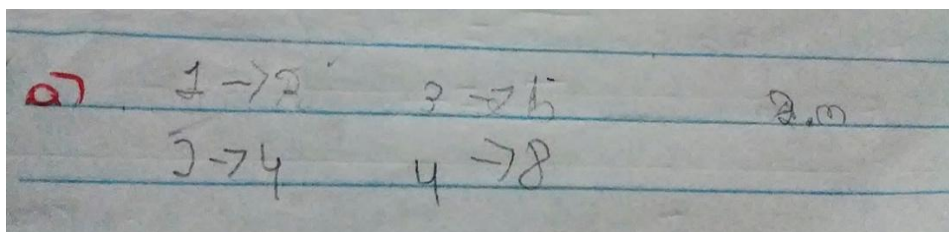 a) 1 → 2 3 → 6 2.n
2 → 4 4 → 8